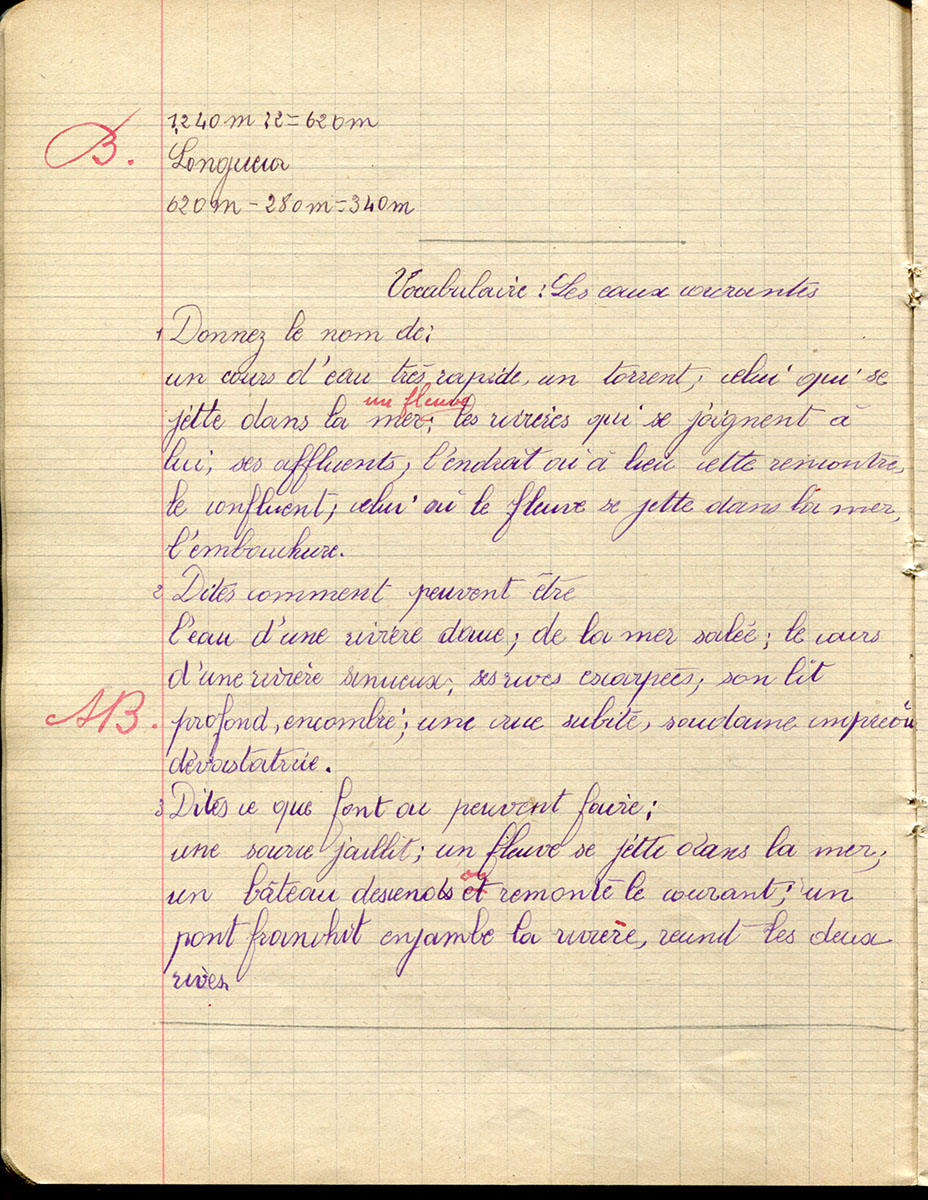 1240m : 2 = 620m
B.
Longueur
620m - 280m = 340m
Vocabulaire : Les eaux courantes
1 Donnez le nom de :
un cours d'eau très rapide, un torrent ; celui qui se
un fleuve
jette dans la mer ; les rivières qui se joignent à
lui, ses affluents ; l'endroit où à lieu cette rencontre,
le confluent ; celui où le fleuve se jette dans la mer,
l'embouchure.
2 Dites comment peuvent être
l'eau d'une rivière douce ; de la mer salée ; le cours
d'une rivière sinueux ; ses rives escarpées ; son lit
AB.
profond, encombré ; une crue subite, soudaine imprévu
dévastatrice.
3 Dites ce que font ou peuvent faire :
une source jaillit ; un fleuve se jette dans la mer ;
ou
un bâteau descends et remonte le courant ; un
pont franchit enjambe la rivière, reunit les deux
rives.